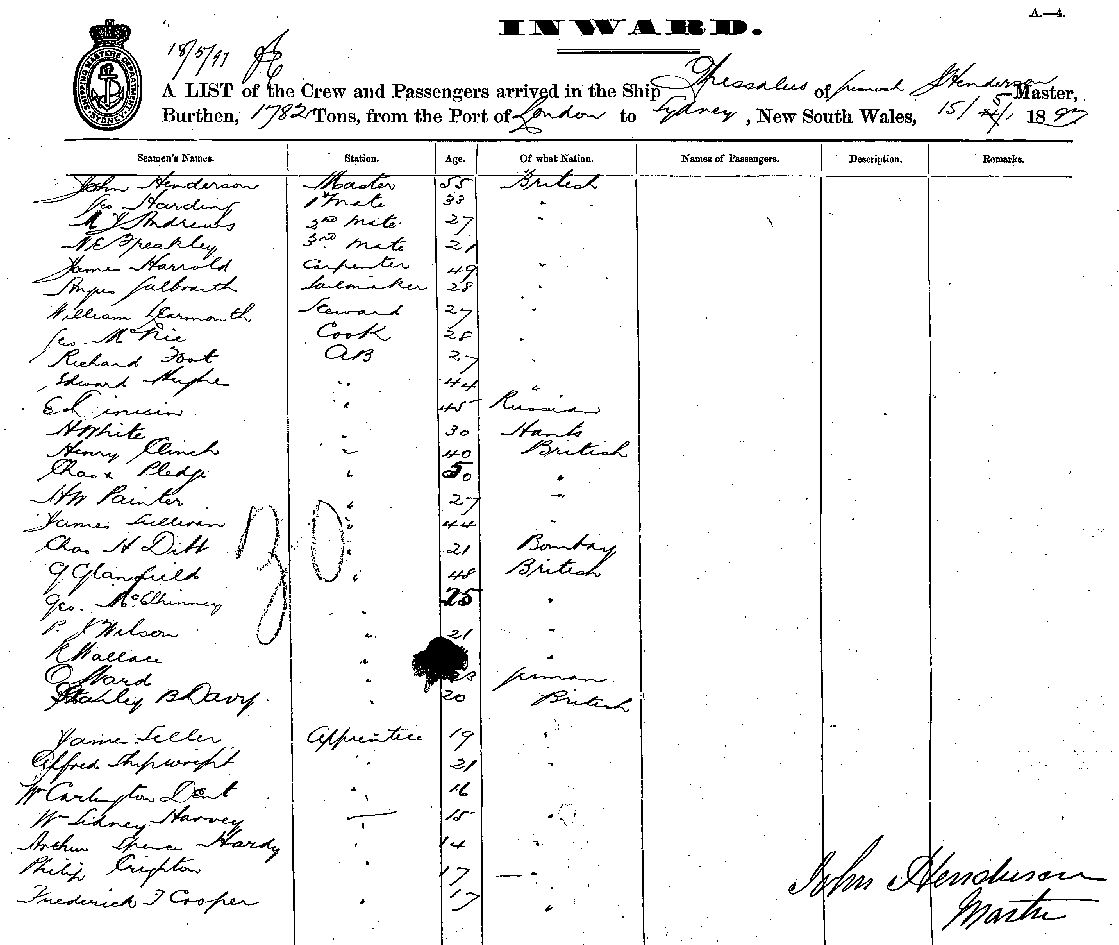 A.—4.
INWARD.
18/5/97
A LIST of the Crew and Passengers arrived in the Ship Thessalus of J Henderson Master,
Burthen, 1782 Tons, from the Port of London to Sydney, New South Wales, 15/5/ 1897
Seamen's Names. Station. Age. Of what Nation. Names of Passengers. Description. Remarks.
John Henderson Master 55 British
Geo Harding 1st Mate 33 "
Andrews 2nd Mate 27 "
N E Speakley 3rd Mate 21
James Harrold Carpenter 49 "
Angus Galbraith Sailmaker 28 "
William Learmonth Steward 27 "
Geo McNie Cook 28 "
Richard Foot AB 27 "
Edward Hughes " 44 "
Ed " 45 Russian
H White " 30 Hants
Henry Clinch " 40 British
Chas Pledge " 50 "
H W Painter " 27 "
James Sullivan " 44 "
Chas H Ditt " 21 Bombay
G Glanfield " 48 British
Geo. " 25 "
P. J Wilson " 21 "
R Wallace " "
O Ward " German
Stanley B Davy. " 20 British
30
James Seller Apprentice 19 "
Alfred Shipwright " 21 "
Wm Carlington Dent " 16 "
Wm Sidney Harvey — 15 "
Arthur Spence Hardy " 14 "
Philip Crighton " 17 — "
Frederick J Cooper " 17 "
John Henderson
Master